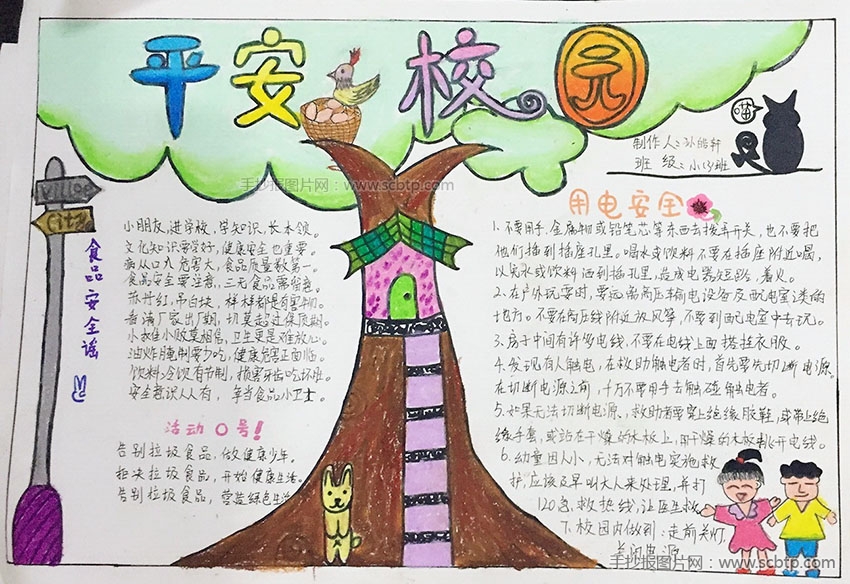 平安校园
喵
制作人:孙皓轩
班 级:小(3)班
手抄报图片网:www.scbtp.com
Village
City
食品安全谣
小朋友,进学校,学知识,长本领。
文化知识要学好,健康安全也重要。
病从口入危害大,食品质量数第一。
食品安全要注意,三无食品需留意。
苏丹红,吊白块,样样都是有害物。
看清厂家出厂期,切莫超过保质期。
小摊小贩莫相信,卫生更是难放心。
油炸腌制要少吃,健康危害正面临。
饮料冷饮有节制,损害牙齿吃坏班。
安全意识人人有,争当食品小卫士。
活动口号!
告别垃圾食品,做健康少年。
拒决垃圾食品,开始健康生活。
告别垃圾食品,营造绿色生活
用电安全
1.不要用手、金属物或铅笔芯等东西去拨弄开关,也不要把
他们插到插座孔里。喝水或饮料不要在插座附近喝,
以免水或饮料洒到插孔里,造成电器短路、着火。
2.在户外玩耍时,要远离高压输电设备及配电室之类的
地方。不要在高压线附近放风筝,不要到配电室中去玩。
3.房子中间有许多电线,不要在电线上面搭挂衣服。
4.发现有人触电,在救助触电者时,首先要先切断电源。
在切断电源之前,千万不要用手去触碰触电者。
5.如果无法切断电源,救助者要穿上绝缘胶鞋,或带上绝
缘手套,或站在干燥的木板上,用干燥的木板挑开电线。
6.幼童因人小,无法对触电实施救
护,应该及早叫大人来处理,并打
120急救热线,让医生救
下校园内做到:走前关灯,
关闭电源
手抄报图片网:www.scbtp.com